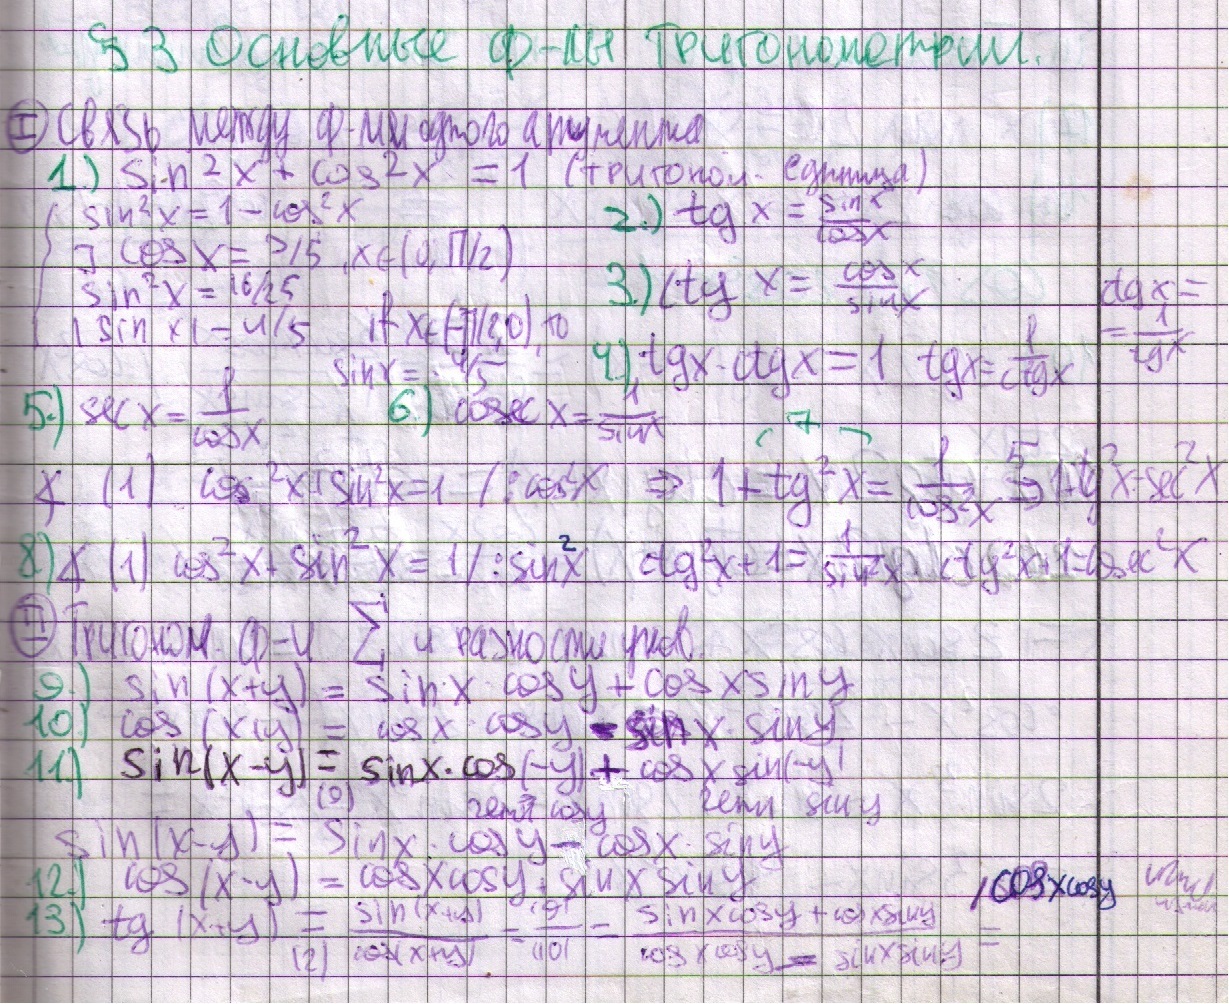 §3 Основные ф-лы тригонометрии.
I Связь между ф-ми одного аргумента
1.) sin²x + cos²x = 1 (тригоном. единица)
sin²x = 1 - cos²x
2.) tg x = sin x / cos x
] cos x = 3/5, x∈(0, П/2)
sin²x = 16/25
3.) ctg x = cos x / sin x
ctg x =
= 1/tg x
|sin x| = 4/5 if x∈(-П/2, 0), то
sin x = -4/5
4.) tg x · ctg x = 1 tg x = 1/ctg x
5.) sec x = 1/cos x 6.) cosec x = 1/sin x
7
∢ (1) cos²x + sin²x = 1 / : cos²x ⇒ 1 + tg²x = 1/cos²x 5⇒ 1+tg²x=sec²x
8) ∢ (1) cos²x + sin²x = 1 / : sin²x ctg²x + 1 = 1/sin²x ctg²x+1=cosec²x
II Тригоном. ф-и ∑ и разности углов.
9.) sin (x+y) = sin x · cos y + cos x sin y
10.) cos (x+y) = cos x · cos y - sin x · sin y
11.) sin(x-y) = sin x · cos (-y) + cos x sin(-y)
(9) cos y sin y
sin (x-y) = sin x · cos y - cos x · sin y
12.) cos (x-y) = cos x cos y + sin x sin y
13.) tg (x+y) = sin(x+y) / cos(x+y) = (9) / (10) = sin x cos y + cos x sin y / cos x cos y - sin x sin y =
(2)
/ cos x cos y